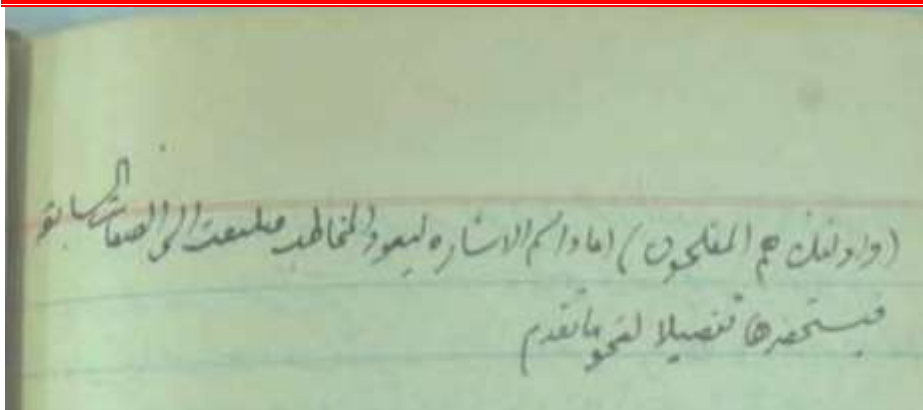 (واولئك هم المفلحون) اعاد اسم الاشاره ليعود المخاطب فيلتفت الى الصفات السابقة
فيستحضرها تفصيلا لنحو ما تقدم